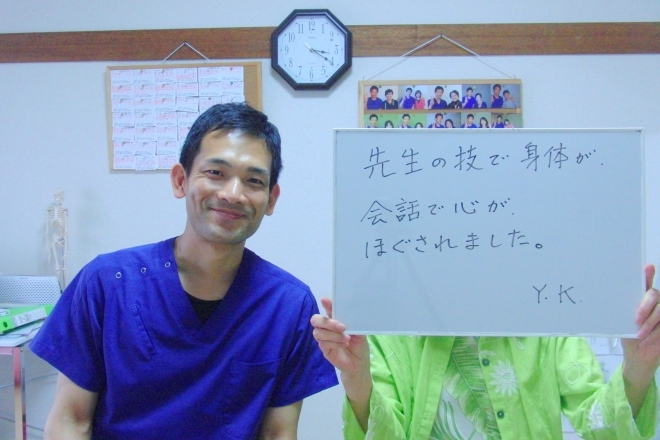 先生の技で身体が.
会話で心が.
ほぐされました。
Y.K.